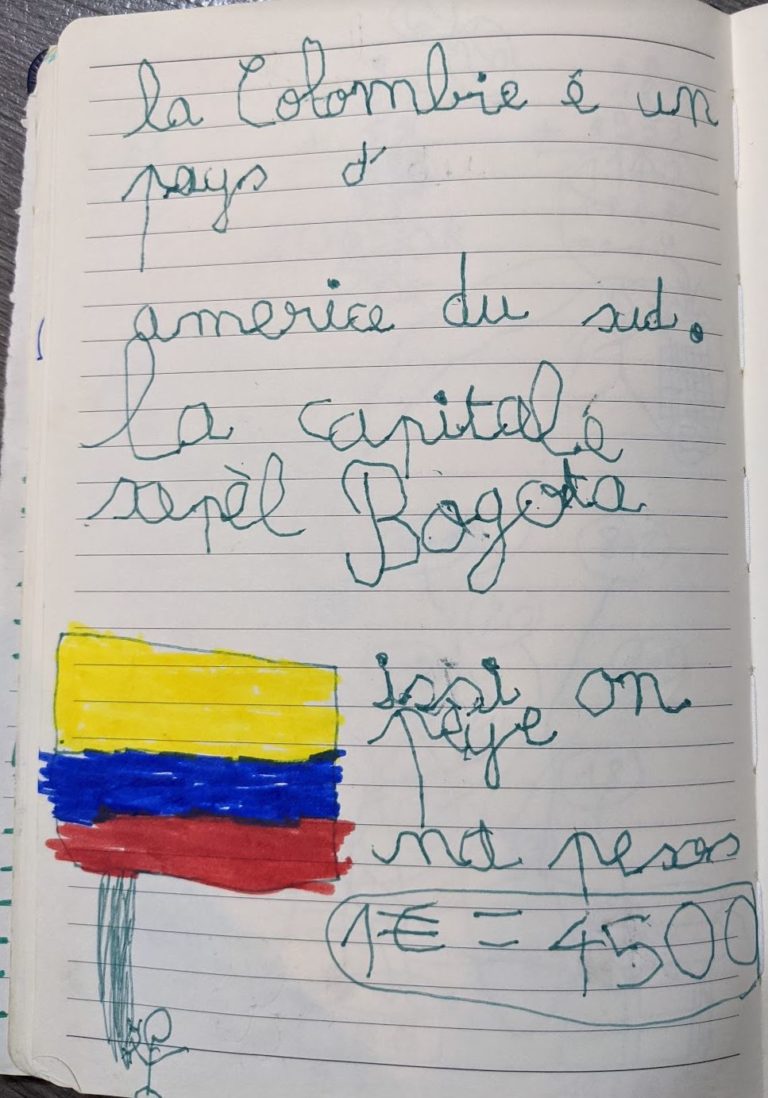 la Colombie é un
pays d'
americe du sud.
la capitalé
sepèl Bogota
issi on
peye
na pesos
1€ = 4500